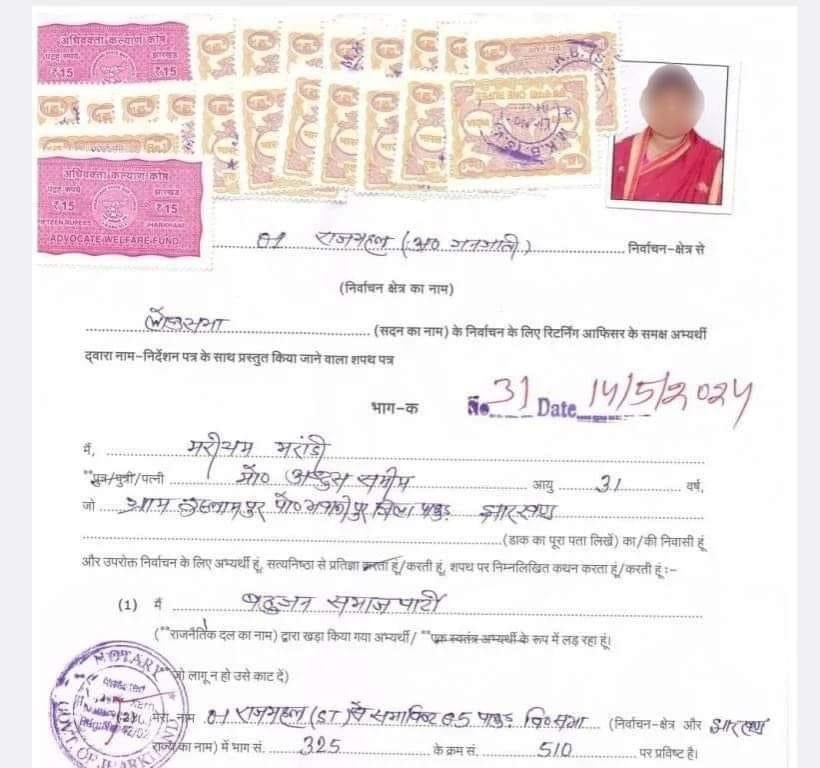 अधिवक्ता कल्याण कोष
पंद्रह रुपये झारखण्ड
₹15 ₹15
अधिवक्ता कल्याण कोष
पंद्रह रुपये झारखण्ड
₹15 ₹15
FIFTEEN RUPEES JHARKHAND
ADVOCATE WELFARE FUND
01 राजमहल (अ० जनजाति) निर्वाचन-क्षेत्र से
(निर्वाचन क्षेत्र का नाम)
लोकसभा (सदन का नाम) के निर्वाचन के लिए रिटर्निंग आफिसर के समक्ष अभ्यर्थी
द्वारा नाम-निर्देशन पत्र के साथ प्रस्तुत किया जाने वाला शपथ पत्र
भाग-क
No. 31 Date 14/5/2024
मैं, मरीयम मरांडी
**पुत्र/पुत्री/पत्नी मो० अब्दुस समीम आयु 31 वर्ष,
जो ग्राम इस्लामपुर पो० जिला पाकुड़ झारखण्ड
(डाक का पूरा पता लिखें) का/की निवासी हूं
और उपरोक्त निर्वाचन के लिए अभ्यर्थी हूं, सत्यनिष्ठा से प्रतिज्ञा करता हूं/करती हूं, शपथ पर निम्नलिखित कथन करता हूं/करती हूं :-
(1) मैं बहुजन समाज पार्टी
(**राजनैतिक दल का नाम) द्वारा खड़ा किया गया अभ्यर्थी/ **एक स्वतंत्र अभ्यर्थी के रूप में लड़ रहा हूं।
जो लागू न हो उसे काट दें)
(2) मेरा नाम 01 राजमहल (ST) में समाविष्ट 05 पाकुड़ वि० सभा (निर्वाचन-क्षेत्र और झारखण्ड
राज्य का नाम) में भाग सं. 325 के क्रम सं. 510 पर प्रविष्ट है।
NOTARY
GOVT OF JHARKHAND